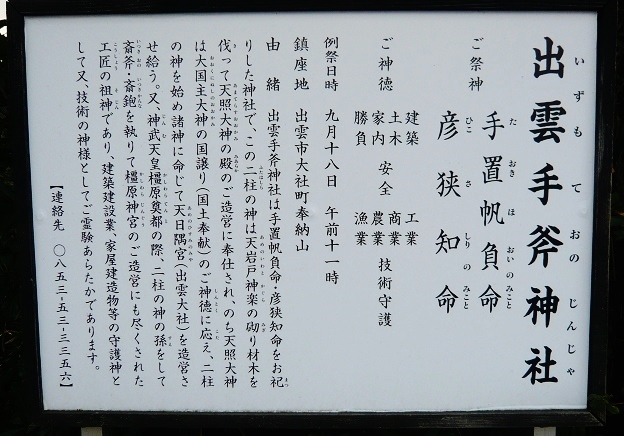 出雲手斧神社
いずも て おの じんじゃ
ご祭神
手置帆負命
た おき ほ おいのみこと
彦狭知命
ひこ さ しりの みこと
ご神徳
建築 工業
土木 安全 商業 技術守護
家内 農業
勝負 漁業
例祭日時 九月十八日 午前十一時
鎮座地 出雲市大社町奉納山
由緒 出雲手斧神社は手置帆負命・彦狭知命をお祀
りした神社で、この二柱の神は天岩戸神楽の砌り材木を
伐って天照大神の殿のご造営に奉仕され、のち天照大神
は大国主大神の国譲り(国土奉献)のご神徳に応え、二柱
の神を始め諸神に命じて天日隅宮(出雲大社)を造営さ
せ給う。又、神武天皇橿原奠都の際、二柱の神の孫をして
斎斧・斎鉏を執りて橿原神宮のご造営にも尽くされた
工匠の祖神であり、建築建設業、家屋建造物等の守護神と
して又、技術の神様としてご霊験あらたかであります。
【連絡先 〇八五三-五三-三三五六】